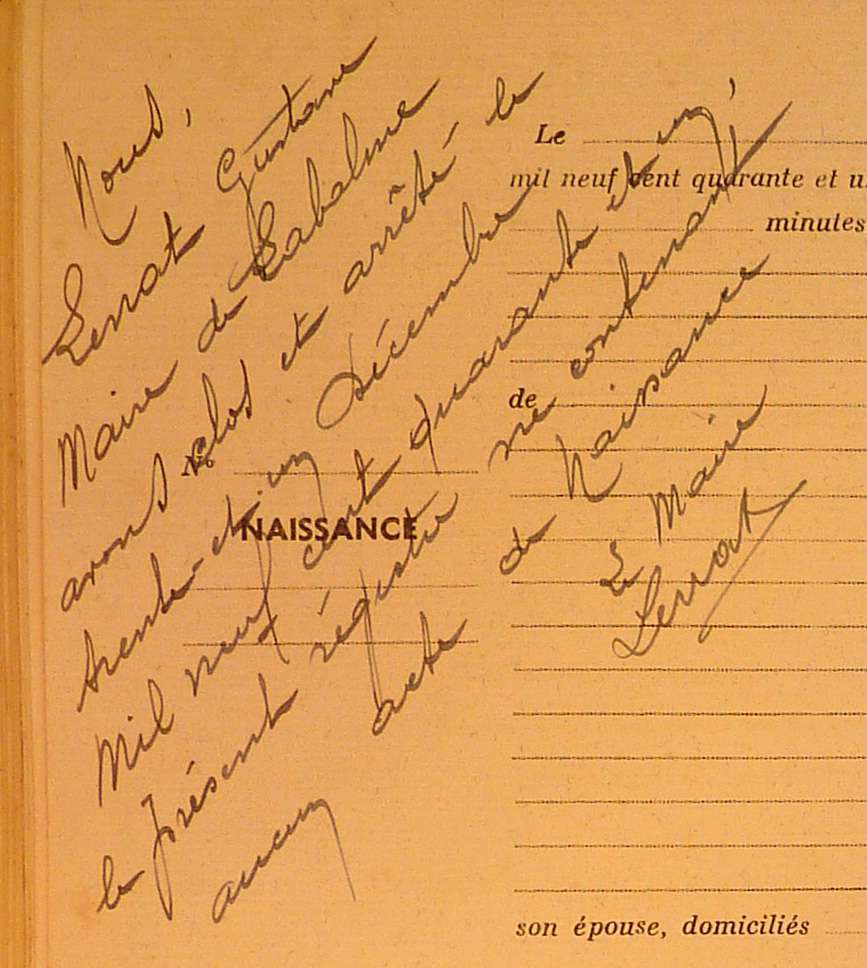 Nous,
Gustave
Maire de Labalme
avons clos et arrêté le
trente-et-un Décembre
Mil neuf cent quarante et un,
le présent régistre ne contenant
aucun acte de Naissance
Le Maire
Le
mil neuf cent quarante et u
minutes
de
No
NAISSANCE
son épouse, domiciliés